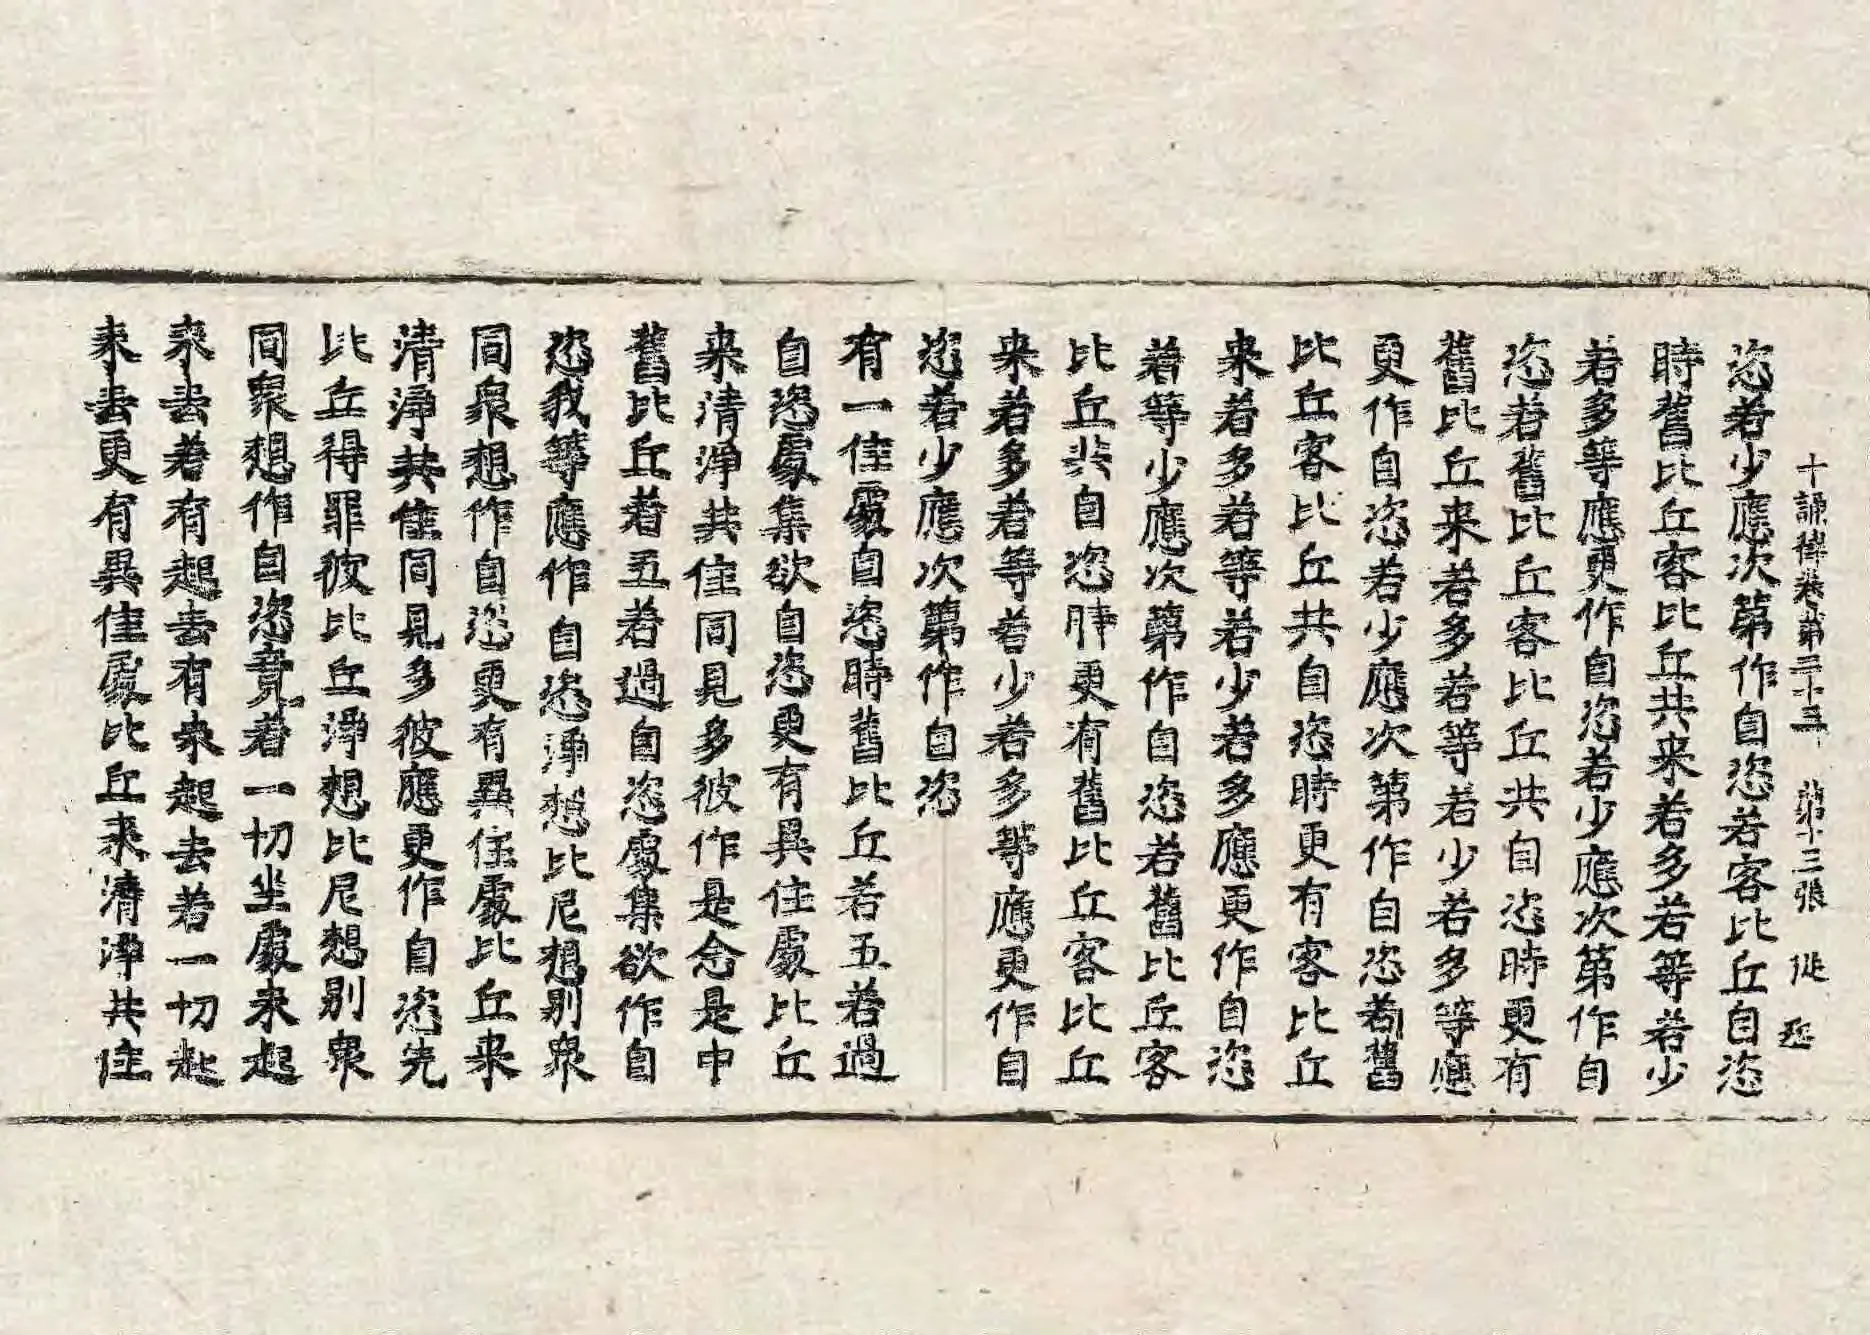 十誦律卷第二十三 第十三張 從
恣若少應次第作自恣若客比丘自恣
時舊比丘客比丘共来若多若等若少
若多等應更作自恣若少應次第作自
恣若舊比丘客比丘共自恣時更有
舊比丘来若多若等若少若多等應
更作自恣若少應次第作自恣若舊
比丘客比丘共自恣時更有客比丘
来若多若等若少若多應更作自恣
若等少應次第作自恣若舊比丘客
比丘共自恣時更有舊比丘客比丘
来若多若等若少若多等應更作自
恣若少應次第作自恣
有一住處自恣時舊比丘若五若過
自恣處集欲自恣更有異住處比丘
来清淨共住同見多彼作是念是中
舊比丘若五若過自恣處集欲作自
恣我等應作自恣淨想比尼想別衆
同衆想作自恣更有異住處比丘来
清淨共住同見多彼應更作自恣先
比丘得罪彼比丘淨想比尼想別衆
同衆想作自恣竟若一切坐處未起
来去若有起去有未起去若一切起
未去更有異住處比丘来清淨共住